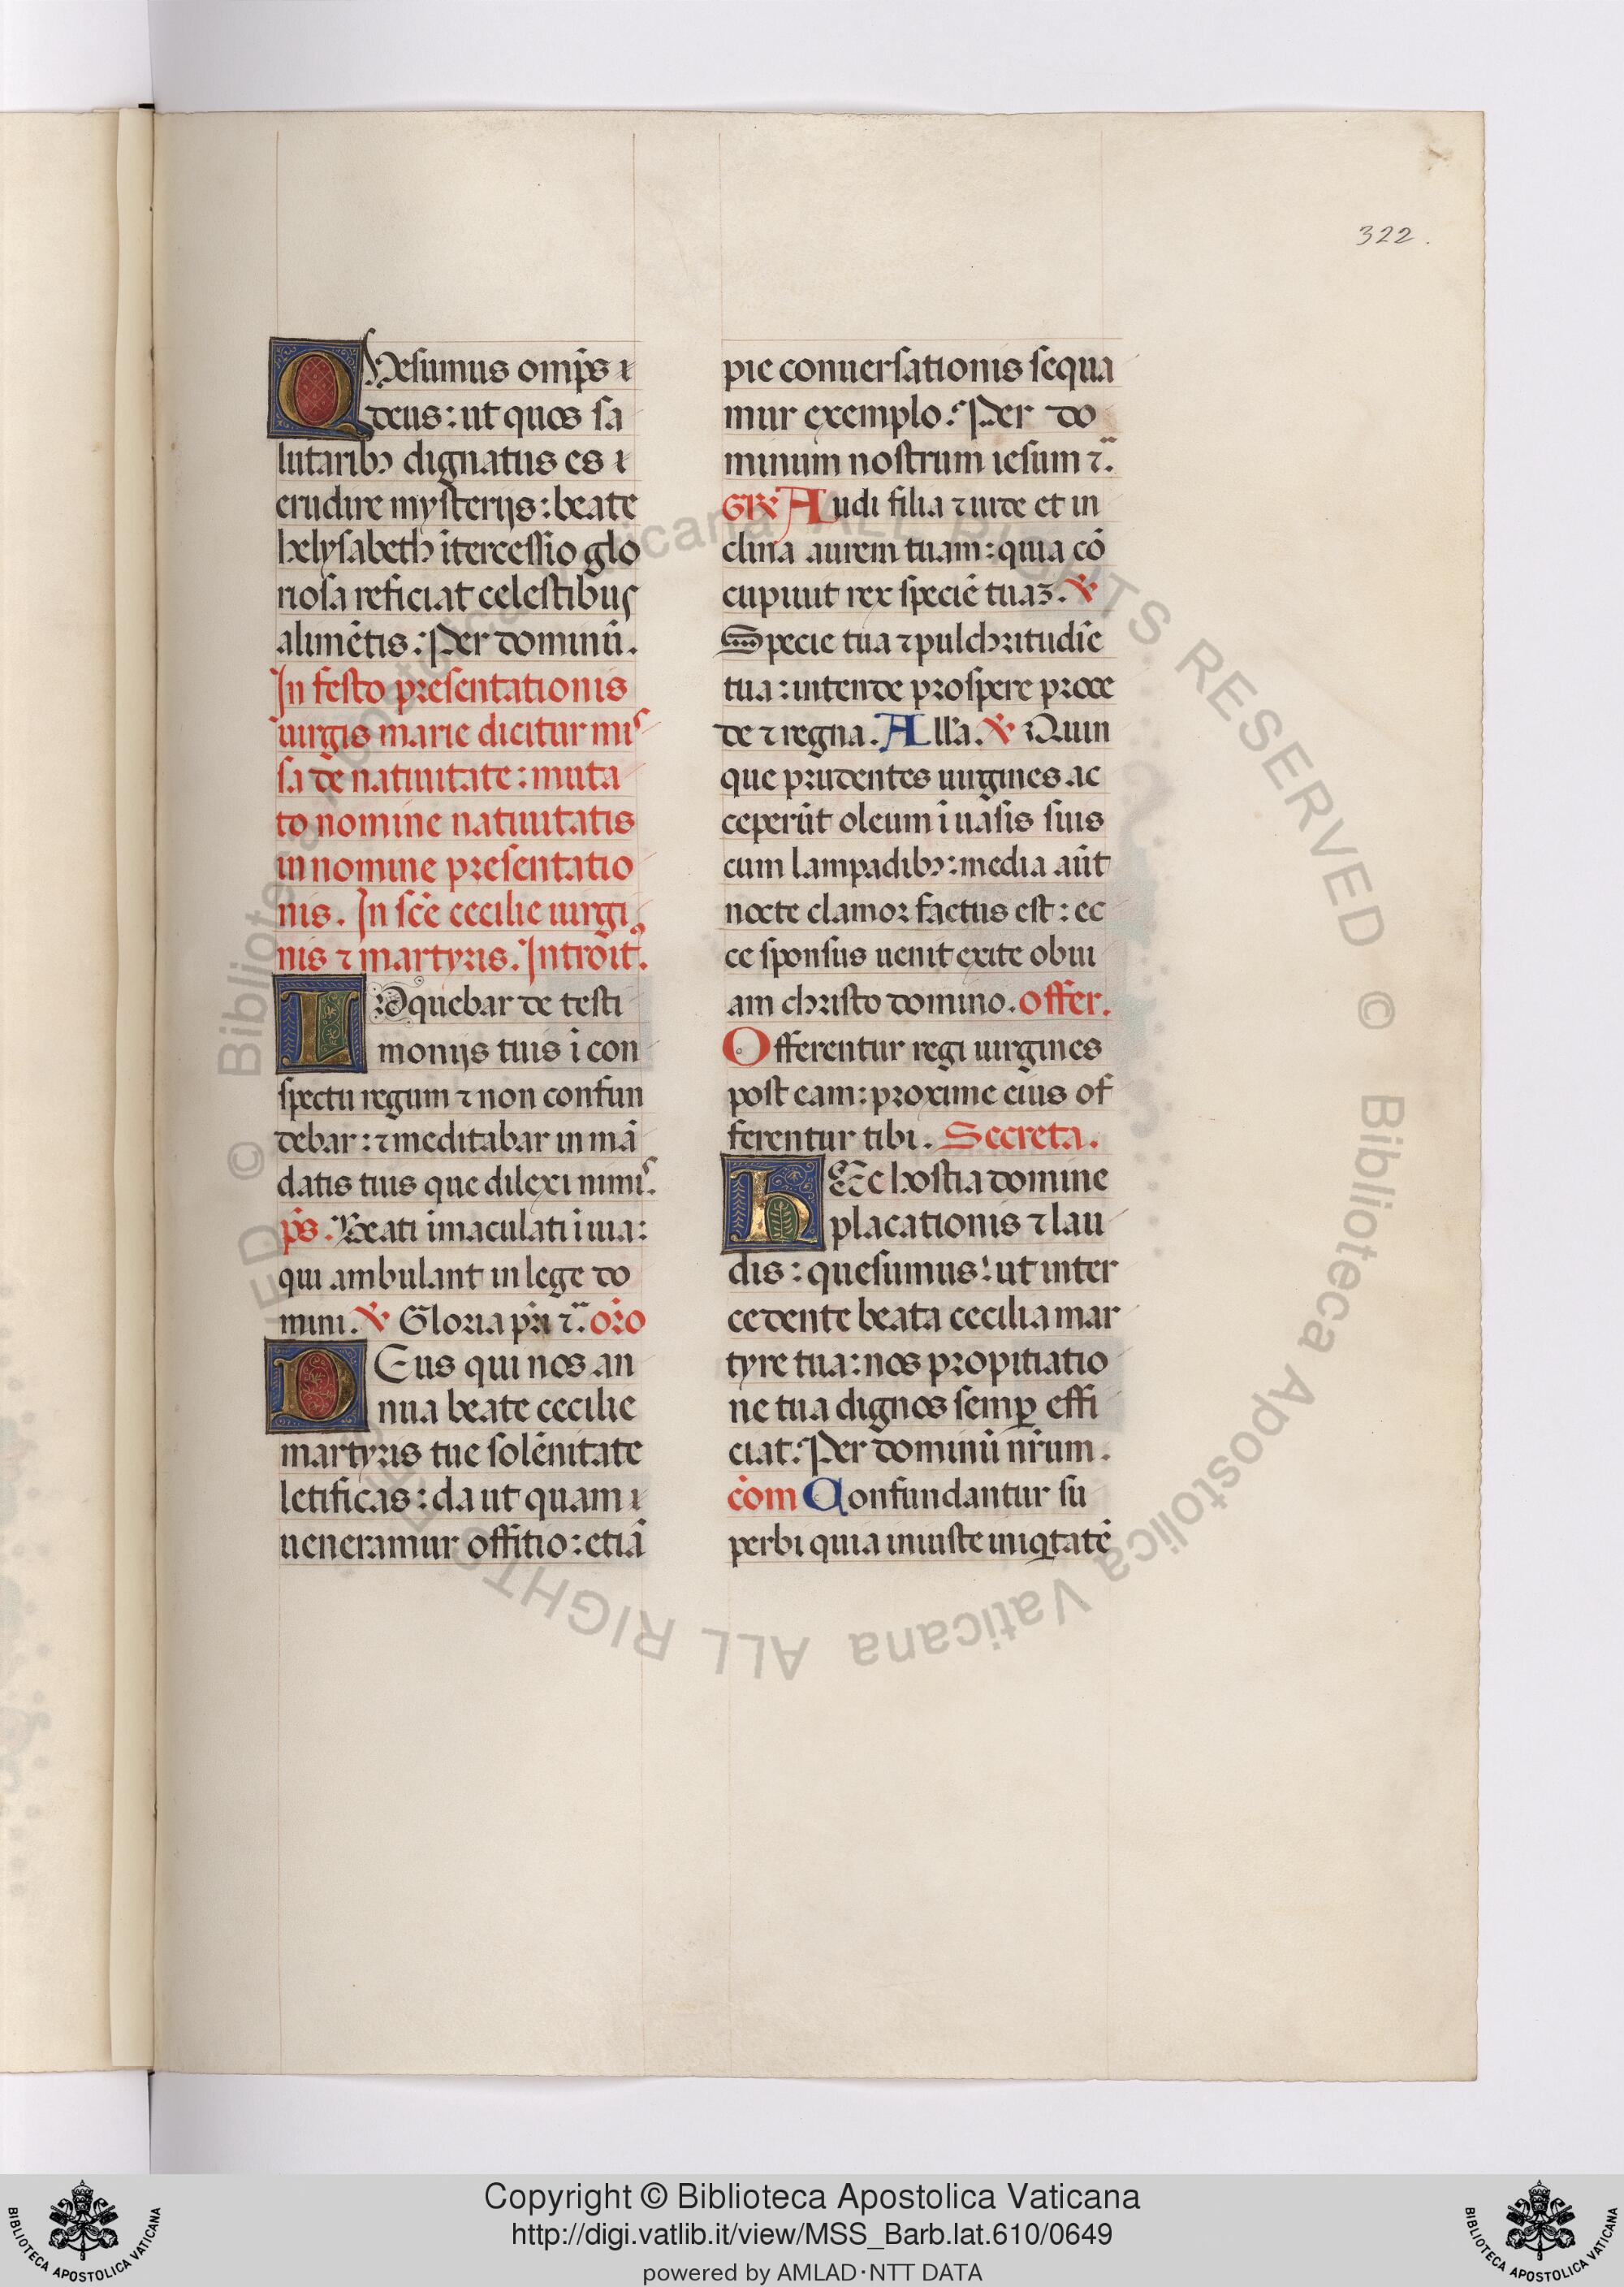 322.
QVesumus omp̄s ı
deus: ut quos sa
lutarib⁊ dignatus es ı
erudire mysterijs: beate
helysabeth ītercessio glo
riosa reficiat celestibus
alimētis: Per dominū.
In festo presentationis
uirgis marie dicitur mis
sa de natiuitate: muta
to nomine natiuitatis
in nomine presentatio
nis. In scē cecilie uirgi
nis ⁊ martyris. Introitꝰ.
LOquebar de testi
monijs tuis ī con
spectu regum ⁊ non confun
debar: ⁊ meditabar in mā
datis tuis que dilexi nimis.
p̄s. Beati īmaculati ī uia:
qui ambulant in lege do
mini. ℣ Gloria pr̄i ⁊̈. or̄o
DEus qui nos an
nua beate cecilie
martyris tue solēnitate
letificas: da ut quam ı
ueneramur offitio: etiā
pie conuersationis sequa
mur exemplo. Per do
minum nostrum iesum ⁊̈.
GR̄ Audi filia ⁊ uide et in
clina aurem tuam: quia cō
cupiuit rex speciē tuaꝫ. ℣
Specie tua ⁊ pulchritudīe
tua: intende prospere proce
de ⁊ regna. All'a. ℣ Quin
que prudentes uirgines ac
ceperūt oleum ī uasis suis
cum lampadib⁊: media aūt
nocte clamor factus est: ec
ce sponsus uenit exite obui
am christo domino. offer.
Offerentur regi uirgines
post eam: proxime eius of
ferentur tibi. Secreta.
hEc hostia domine
placationis ⁊ lau
dis: quesumus: ut inter
cedente beata cecilia mar
tyre tua: nos propitiatio
ne tua dignos semꝑ effi
ciat. Per dominū nr̄um.
c̄om Confundantur su
perbi quia iniuste iniqtatē
© Biblioteca Apostolica Vaticana ALL RIGHTS RESERVED © Biblioteca Apostolica Vaticana ALL RIGHTS RESERVED
BIBLIOTECA APOSTOLICA VATICANA
Copyright © Biblioteca Apostolica Vaticana
http://digi.vatlib.it/view/MSS_Barb.lat.610/0649
powered by AMLAD·NTT DATA
BIBLIOTECA APOSTOLICA VATICANA